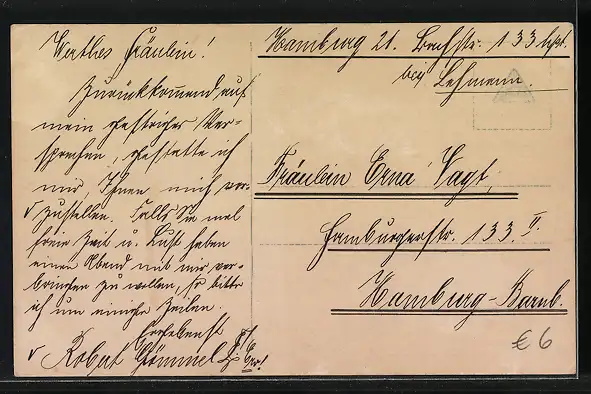 Werthes Fräulein!
Zurückkommend auf
mein gestriges Ver-
sprechen, gestatte ich
mir, Ihnen mich vor-
zustellen. Falls Sie mal
freie Zeit u. Lust haben
einen Abend mit mir ver-
bringen zu wollen, so bitte
ich um einige Zeilen.
Ergebenst
Robert
Hamburg 21. 133 hpt.
bei Lehmann.
Fräulein Erna Vagt,
Hamburgerstr. 133. II.
Hamburg-Barmb.
€ 6